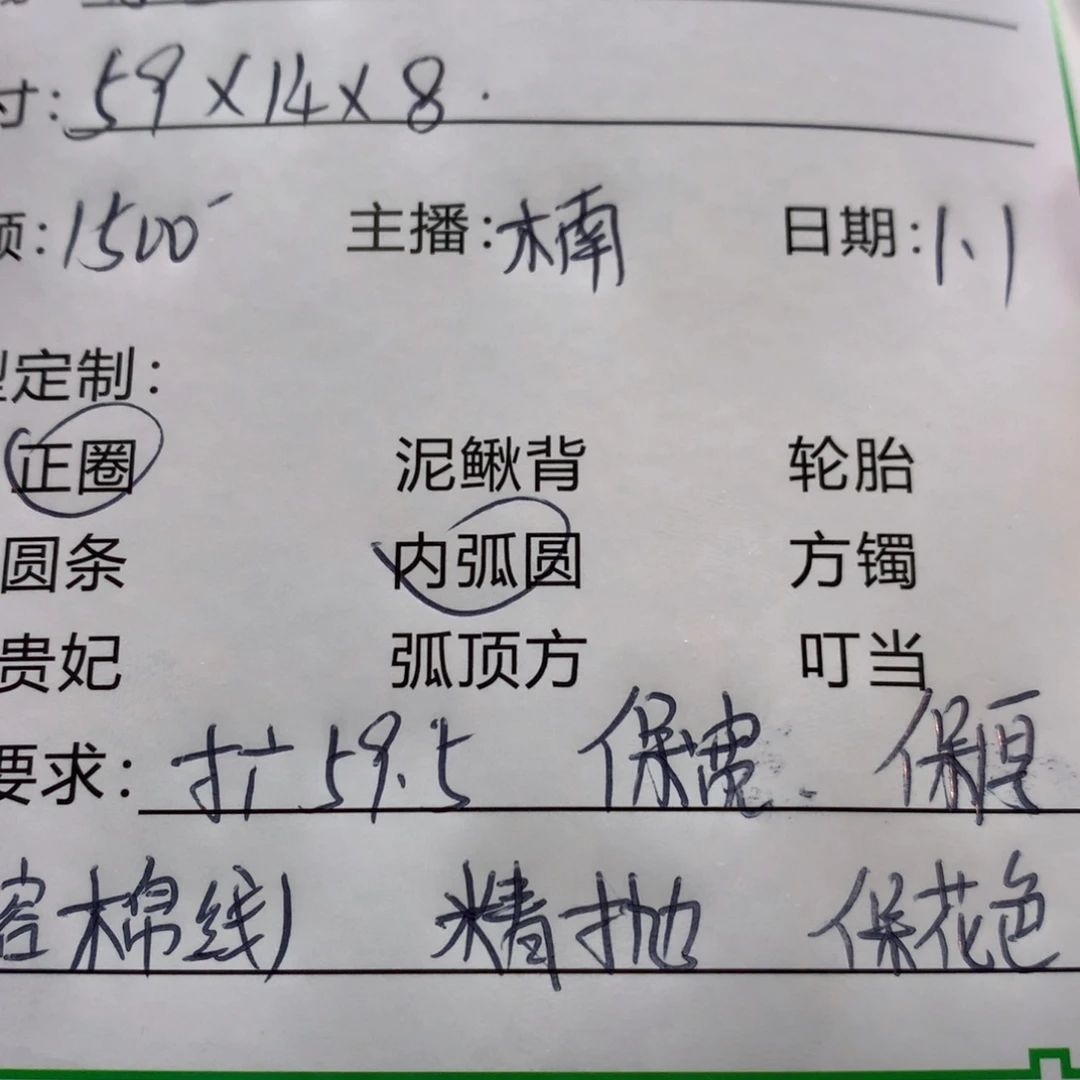 寸: 59×14×8.
额: 1500 主播: 楠 日期: 1、1
型定制:
正圈 泥鳅背 轮胎
圆条 内弧圆 方镯
贵妃 弧顶方 叮当
要求: 扩59.5 保宽. 保厚
容棉线) 精抛 保花色